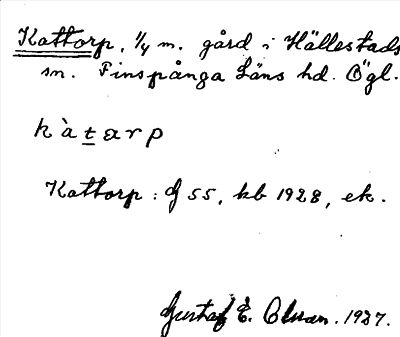 Kattorp, 1/4 m. gård i Hällestads
sn. Finspånga Läns hd. Ögl.
kàtarp
Kattorp: J 55, kb 1928, ek.
Gustaf E. Olsson. 1927.